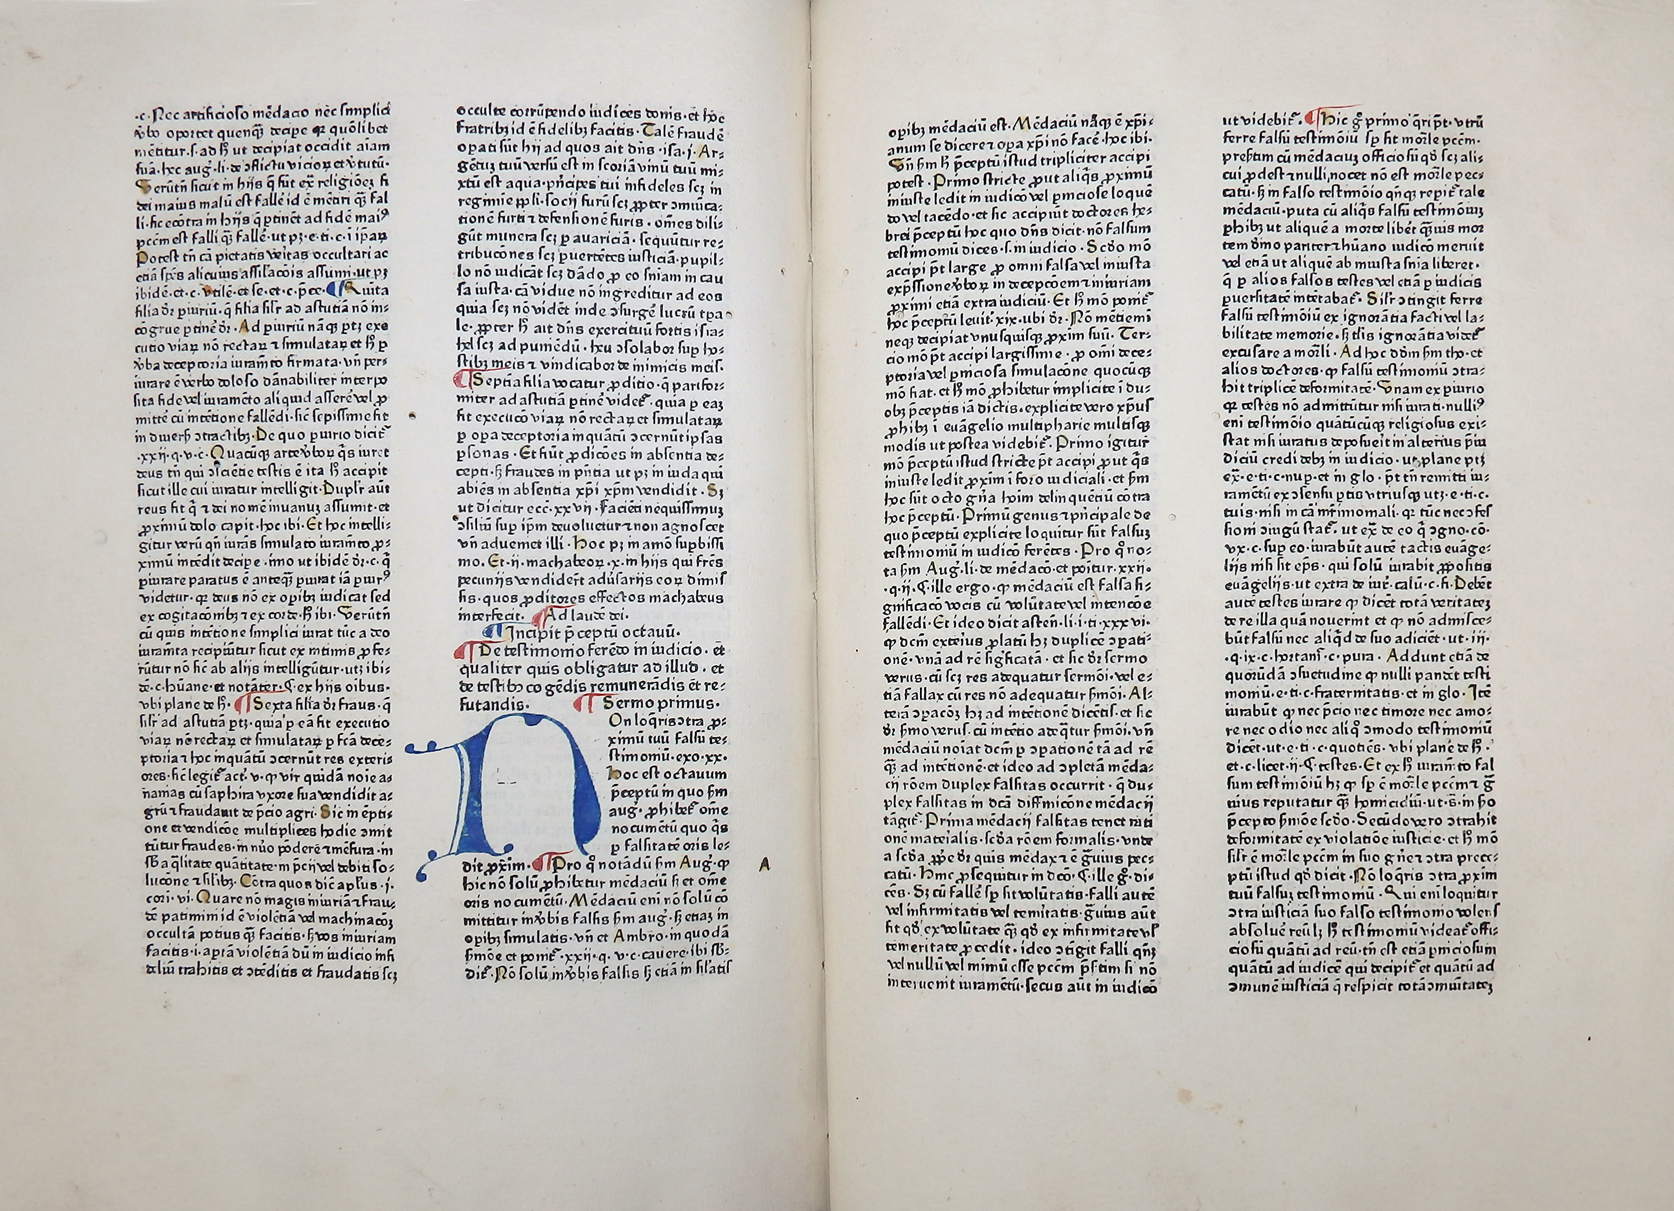 .c. Nec artificioso mēdacio nec simplici
v̄bo oportet quenq̄ȝ decipe
mētitur.s.ad hͦ ut decipiat occidit aīam
suā.hec aug.li.de ↄflictu
dei maius malū est fallē id ē mētiri
li.sic ecōtra in hijs q̄ ptinēt ad fidē
pccm est falli
Potest tn̄ cā pietatis veritas occultari ac
etiā alicuius
ibidē.et.c.vtile.et.se.et.c.pce. ¶ Quīta
filia dr̄ piuriū.q̄ filia silr̄ ad astutiā nō in-
cōgrue ptinē dr̄. Ad piuriū nāqȝ ptȝ exe
cutio viaꝝ nō rectaꝝ ⁊ simulataꝝ et hͦ p
v̄ba deceptoria iuramēto firmata. vn̄ per-
iurare ē verbo doloso dānabiliter interpo
sita fide vel iuramēto aliquid asserē vel
mittē cū intētione fallēdi. sic sepissime fit
in diuersis ↄtractibȝ. De quo piurio
.xxij.q.v.c. Quacūqȝ arte v̄boꝝ q̄s iuret
deus tn̄ qui ↄsciētie testis ē ita hͦ accipit
sicut ille cui iuratur intelligit. Duplr̄ aūt
reus fit q̄ ⁊ dei nomē in uanuȝ assumit. et
ꝓximū dolo capit. hec ibi. Et hoc intelli-
gitur verū qn̄ iurās simulato
ximū intēdit decipe. imo ut ibidē dr̄.c.q̄
piurare paratus ē anteqȝ piurat iā
videtur. qꝛ deus nō ex opibȝ iudicat sed
ex cogitacōnibȝ ⁊ ex corde. hͦ ibi. Verūtn̄
cū quis intētione simplici iurat tūc a deo
recipiūtur sicut ex intimis
rūtur nō sic ab alijs intelligūtur. utȝ ibi-
dē.c.hūane. et ex hijs oībus.
vbi plane de hͦ. ¶ Sexta filia dr̄ fraus. q̄
silr̄ ad astutiā ptȝ. quia p eā fit executio
viaꝝ nō rectaꝝ et simulataꝝ p fcā dece-
ptoria ⁊ hoc inquātū ↄcernūt res exteri-
ores. sic act.v. vir quidā noīe a-
namas cū saphira vxore sua vendidit a-
grū ⁊ fraudauit de p̄cio agri. Sic in ēpti-
one et vendicōe multiplices hodie
tūtur fraudes. in nūo pōderē ⁊ mēsura. in
q̄litate quātitate
lucōne ⁊ silibȝ. Cōtra quos dic̄ apl̄us.j.
cori.vi. Quare nō magis iniuriā ⁊ frau-
dē patimini id ē violētiā vel machinacōȝ
occultā potius
facitis.i.aptā violētiā dū in iudicio infi
deliū trahitis et ↄtēditis et fraudatis scȝ
occulte corrūpendo iudices donis. et hoc
fratribȝ id ē fidelibȝ facitis. Talē fraudē
opati sūt hij ad quos ait dn̄s .isa.j. Ar-
gētuȝ tuū versū est in scoriā vinū tuū mi-
xtū est aqua. p̄ncipes tui infideles scȝ in
regimīe
tionē furti ⁊ defensionē furis. om̄es dili-
gūt munera scȝ p auariciā. sequūtur re-
tribucōnes scȝ puertētes iusticiā. pupil-
lo nō iudicāt scȝ dādo ꝓ eo sniam in cau
sa iusta. cā vidue nō ingreditur ad eos
quia scȝ nō vidēt inde ↄsurgē lucrū tpa-
le. ꝓpter hͦ ait dn̄s exercituū fortis isra-
hel scȝ ad puniēdū. heu ↄsolabor sup ho-
stibȝ meis ⁊ vindicabor de inimicis meis.
¶ Septīa filia vocatur ꝓditio. q̄ parifor-
miter ad astutiā ptinē videt̄. quia p eaȝ
fit execucō viaꝝ nō rectaꝝ et simulataꝝ
p opa deceptoria inquātū ↄcernūt ipsas
psonas. Et hūt ꝓdicōes in absentia de-
cepti. hͦ fraudes in p̄ntia ut pȝ in iuda qui
abiēs in absentia xp̄i xp̄m vendidit. Sȝ
ut dicitur ecc.xxvij. Faciēti nequissimuȝ
ↄsiliū sup ip̄m deuoluetur ⁊ non agnoscet
vn̄ adueniet illi. Hoc pȝ in amō supbissi
mo. Et.ij.machabeoꝝ.x.in hijs qui fr̄es
pecunijs vendider̄t adūsarijs eoꝝ dimis
sis. quos ꝓditores effectos machabeus
interfecit. ¶ Ad laudē dei.
¶ Incipit p̄ceptū octauū.
¶ De testimonio ferēdo in iudicio. et
qualiter quis obligatur ad illud. et
de testibȝ cogēdis remunerādis et re-
futandis. ¶ Sermo primus.
N On loq̄ris ↄtra ꝓ-
ximū tuū falsū te-
stimoniū. exo.xx.
Hoc est octauum
p̄ceptū in quo sm̄
aug. ꝓhibet̄ om̄e
nocumētū quo q̄s
p falsitatē oris le-
dit ꝓxim̄. ¶ Pro q̄ notādū sm̄ Aug. ꝙ
hic nō solū ꝓhibetur mēdaciū sȝ et om̄e
oris nocumētū. Mēdaciū eni nō solū cō
mittitur in v̄bis falsis sm̄ aug. sȝ etiaȝ in
opibȝ simulatis. vn̄ et Ambro. in quodā
sm̄ōe et ponit̄ .xxij.q.v.c.cauere. ibi
dit̄. Nō solū in v̄bis falsis sȝ etiā in
A
opibȝ mēdaciū est. Mēdaciū nāqȝ ē xp̄i-
anum se dicere ⁊ opa xp̄i nō facē. hec ibi.
Vn̄ sm̄ hͦ p̄ceptū istud tripliciter accipi
potest. Primo stricte ꝓut aliq̄s ꝓximū
iniuste ledit in iudicō vel p̄niciose loquē
do vel tacēdo. et sic accipiūt doctores he-
brei p̄ceptū hoc quo dn̄s dicit nō falsum
testimoniū dices.s.in iudicio. Scd̄o mō
accipi pt̄ large ꝓ omni falsa vel iniusta
exp̄ssione v̄boꝝ in decepcōem ⁊ iniuriam
ꝓximi etiā extra iudiciū. Et hͦ mō ponit̄
hoc p̄ceptū leuit.xix. ubi dr̄. Nō mētiemī
neqȝ decipiat vnusquisqȝ ꝓxim̄ suū. Ter-
cio mō pt̄ accipi largissime. ꝓ omī dece-
ptoria vel p̄niciosa simulacōne quocūqȝ
mō fiat. et hͦ mō ꝓhibetur implicite ī du-
obȝ p̄ceptis iā dictis. explicite vero xp̄us
ꝓhibȝ ī euāgelio multipharie multisqȝ
modis ut postea videbit̄. Primo igitur
mō p̄ceptū istud stricte pt̄ accipi ꝓut q̄s
iniuste ledit ꝓxim̄ ī foro iudiciali. et sm̄
hoc sūt octo gn̄a hoīm delinquētiū cōtra
hoc p̄ceptū. Primū genus ⁊ p̄ncipale de
quo p̄ceptū explicite loquitur sūt falsuȝ
testimoniū in iudicō ferētes. Pro q̄ no-
ta sm̄ Aug.li.de mēdacō. et poītur.xxij.
.q.ij.C.ille ergo. ꝙ mēdaciū est falsa si-
gnificacō vocis cū volūtate vel intencōe
fallēdi. Et ideo dicit
ꝙ dcm̄ exterius ꝓlatū hȝ duplicē ↄpati-
onē. vnā ad rē significatā. et sic dr̄ sermo
verus. cū scȝ res adequatur sermōi. vel e-
tiā fallax cū res nō adequatur Al-
terā ↄpacōȝ hȝ ad intētionē dicētis. et sic
dr̄ verus. cū intētio adeq̄tur vn̄
mēdaciū noīat dcm̄ p ↄpationē tā ad rē
q̄ȝ ad intētionē. et ideo ad ↄpletā mēda-
cij rōem duplex falsitas occurrit. q̄ du-
plex falsitas in dcā diffinicōne mēdacij
tāgit̄. Prima mēdacij falsitas tenet rati
onē materialis. scd̄a rōem formalis. vnde
a scd̄a ꝓpe dr̄ quis mēdax ⁊ ē pec-
catū. Hinc ꝓsequitur in dco. C. ille g. di-
cēs. Sȝ cū fallē sp̄ sit volūtatis. falli autē
vel infirmitatis vel
fit qd̄ ex volūtate q̄ȝ qd̄ ex infirmitate vel
temeritate ꝓcedit. ideo ↄtigit falli
vel nullū vel minimū esse pccm p̄stim si nō
interuenit iurametū. secus aūt in iudicō
ut videbit̄. ¶ Hic primo pt̄. vtrū
ferre falsū testimoniū sp̄ sit mor̄le pccm̄.
presertim cū mēdaciuȝ officiosū scȝ ali-
cui ꝓdest ⁊ nulli nocet nō est mor̄le pec-
catū. sȝ in falso testimōio qn̄qȝ tale
mēdaciū. puta cū aliq̄s falsū testimōiuȝ
ꝓhibȝ ut aliquē a morte libet quis mor
tem diuino pariter ⁊ hūano iudicō meruit
vel etiā ut aliquē ab iniusta snīa liberet.
q̄ p alios falsos testes vel etiā p iudicis
puersitatē Silr̄ ↄtingit ferre
falsū testimōiū ex ignorātia facti vel la-
bilitate memorie. sȝ tālis ignorātia videt̄
excusare a mor̄li. Ad hoc dd̄m sm̄ tho. et
alios doctores. ꝙ falsū testimōiū ↄtra-
hit triplicē deformitatē. Vnam ex piurio
qꝛ testes nō admittūtur nisi iurati. nulliꝰ
eni testimōio quātūcūqȝ religiosus exi-
stat nisi iuratus deposuerit in alteriꝰ
diciū credi debȝ in iudicio. ut plane ptȝ
ex.e.ti.c.nup. et in glo. pt̄ tn̄ remitti iu-
ramētū ex ↄsensu ptis vtriusqȝ utȝ.e.ti.c.
tuis. nisi in cā matrimōniali. qꝛ tūc nec ↄfes
sioni ↄiugū
vx.c.sup eo. iurabūt autē tactis euāge-
lijs nisi sit ep̄s. qui solū iurabit ꝓpositis
euāgelijs. ut extra de iur. calū.c.fi. Debēt
autē testes iurare ꝙ dicēt totā veritateȝ
de re illa quā nouerint et ꝙ nō admisce-
būt falsū nec aliq̄d de suo adiciēt. ut.iij.
.q.ix.c.hortam̄.c.pura. Addunt etiā de
quorūdā ↄsuetudine ꝙ nulli pandēt testi
moniū.e.ti.c.fraternitatis. et in glo. Itē
iurabūt ꝙ nec p̄cio nec timore nec amo-
re nec odio nec aliq̄ ↄmodo testimoniū
dicēt. ut.e.ti.c.quotiēs. vbi plane de hͦ.
et.c.licet.ij.C.testes. Et ex hͦ iuramēto fal
sum testimōiū hȝ ꝙ sp̄ ē mor̄le pccm̄ ⁊
uius reputatur q̄ȝ homicidiū. ut
p̄cepto scd̄o. Secūdo vero ↄtrahit
deformitatē ex violatiōe iusticie. et hͦ mō
silr̄ ē mor̄le pccm̄ in suo gn̄e ⁊ ↄtra prece-
ptū istud qd̄ dicit. Nō loq̄ris ↄtra ꝓxim̄
tuū falsuȝ testimoniū. Qui eni loquitur
ↄtra iusticiā suo falso testimonio volens
absoluē reūȝ hͦ testimoniū videat̄ offi-
ciosū quātū ad reū. tn̄ est etiā p̄niciosum
quātū ad iudicē qui decipit̄ et quātū ad
ↄmunē iusticiā q̄ respicit totā ↄmunitateȝ